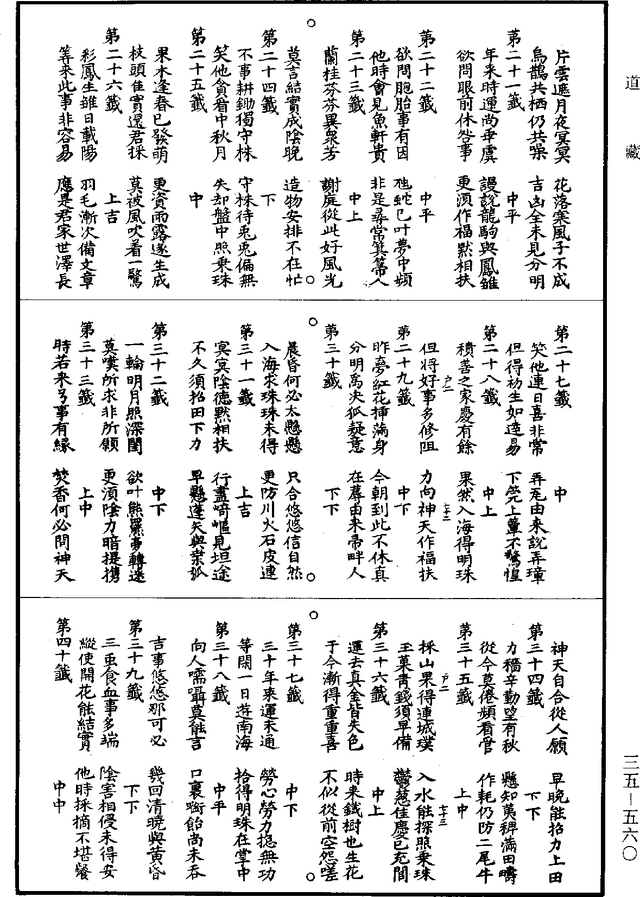 道藏
片雲遮月夜冥冥　花落寒風子不成
烏鵲共栖仍共噪　吉凶全未見分明
第二十一籤　中平
年來時運尚乖虞　謾說龍駒與鳳雛
欲問眼前休咎事　更須作福默相扶
第二十二籤　中平
欲問胞胎事有因　虺蛇已叶夢中頻
他時會見魚軒貴　非是尋常箕箒人
第二十三籤　中上
蘭桂芬芬異衆芳　謝庭從此好風光
莫言結實成陰晚　造物安排不在忙
第二十四籤　下
不事耕鋤獨守株　守株待兎兎偏無
笑他貪看中秋月　失却盤中照乗珠
第二十五籤　中
果木逢春已發萌　更資雨露遂生成
枝頭佳實還君採　莫被風吹着一驚
第二十六籤　上吉
彩鳳生雛日載陽　羽毛漸次備文章
等來此事非容易　應是君家世澤長
第二十七籤　中
笑他連日喜非常　弄瓦由來說弄璋
但得初生如達易　下筦上簟不驚惶
第二十八籤　中上
積善之家慶有餘　果然入海得明珠
但將好事多修阻　力向神天作福扶
第二十九籤　中下
昨夢紅花挿滿身　今朝到此不休真
分明窩夬狐疑意　在蓐由來帝畔人
第三十籤　下下
晨昏何必太懸懸　只合悠悠信自然
入海求珠珠未得　更防川火石皮連
第三十一籤　上吉
冥冥陰德默相扶　行盡崎嶇見坦途
不久須招田下力　早懸蓬矢與桒弧
第三十二籤　中下
一輪明月照深閨　欲叶熊羆夢轉迷
莫嘆所求非所願　更須陰力暗提携
第三十三籤　上中
時若來兮事有緣　焚香何必問神天
神天自合從人願　早晚能招力上田
第三十四籤　下下
力穡辛勤望有秋　懸知荑稗滿田疇
從今莫倦頻看管　作耗仍防二尾牛
第三十五籤　上中
採山果得連城璞　入水能探照乗珠
玉菓貴錢須早備　欝葱佳慶已充閭
第三十六籤　中上
運去真金皆失色　時來鐵樹也生花
于今漸得重重喜　不似從前空怨嗟
第三十七籤　中下
三十年來運未通　勞心勞力揔無功
等閑一日遊南海　拾得明珠在掌中
第三十八籤　中平
向人嚅囁莫能言　口裏啣飴尚未吞
吉事悠悠那可必　幾回清曉與黃昏
第三十九籤　下下
三䖝食血事多端　陰害相侵未得安
縱使開花能結實　他時採摘不堪餐
第四十籤　中中
三五－五六〇